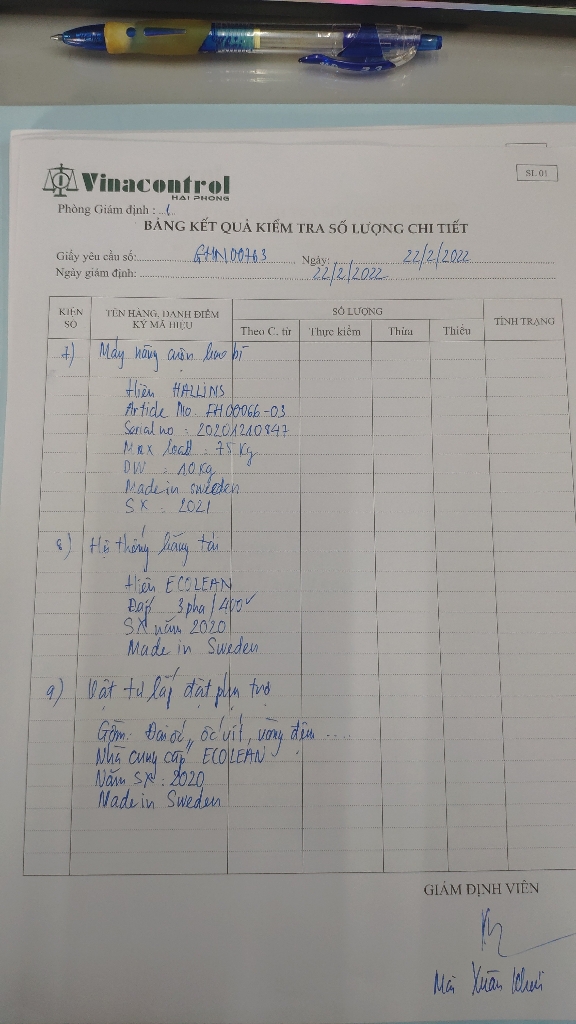 Vinacontrol
HAI PHONG
SL 01
Phòng Giám định : 1
BẢNG KẾT QUẢ KIỂM TRA SỐ LƯỢNG CHI TIẾT
Giấy yêu cầu số: GHN00763 Ngày: 22/2/2022
Ngày giám định: 22/2/2022
KIỆN SỐ
TÊN HÀNG, DANH ĐIỂM KÝ MÃ HIỆU
SỐ LƯỢNG
TÌNH TRẠNG
Theo C. từ Thực kiểm Thừa Thiếu
7) Máy nâng cuộn bao bì
Hiệu HALLINS
Article No. FH00066-03
Serial no : 20201210847
Max load : 75 Kg
DW : 10 Kg
Made in sweden
SX : 2021
8) Hệ thống băng tải
Hiệu ECOLEAN
3 pha / 400V
SX năm 2020
Made in Sweden
9) Vật tư lắp đặt phụ trợ
Gồm: Đai ốc, ốc vít, vòng đệm ....
Nhà cung cấp ECOLEAN
Năm SX : 2020
Made in Sweden
GIÁM ĐỊNH VIÊN
Mai Xuân